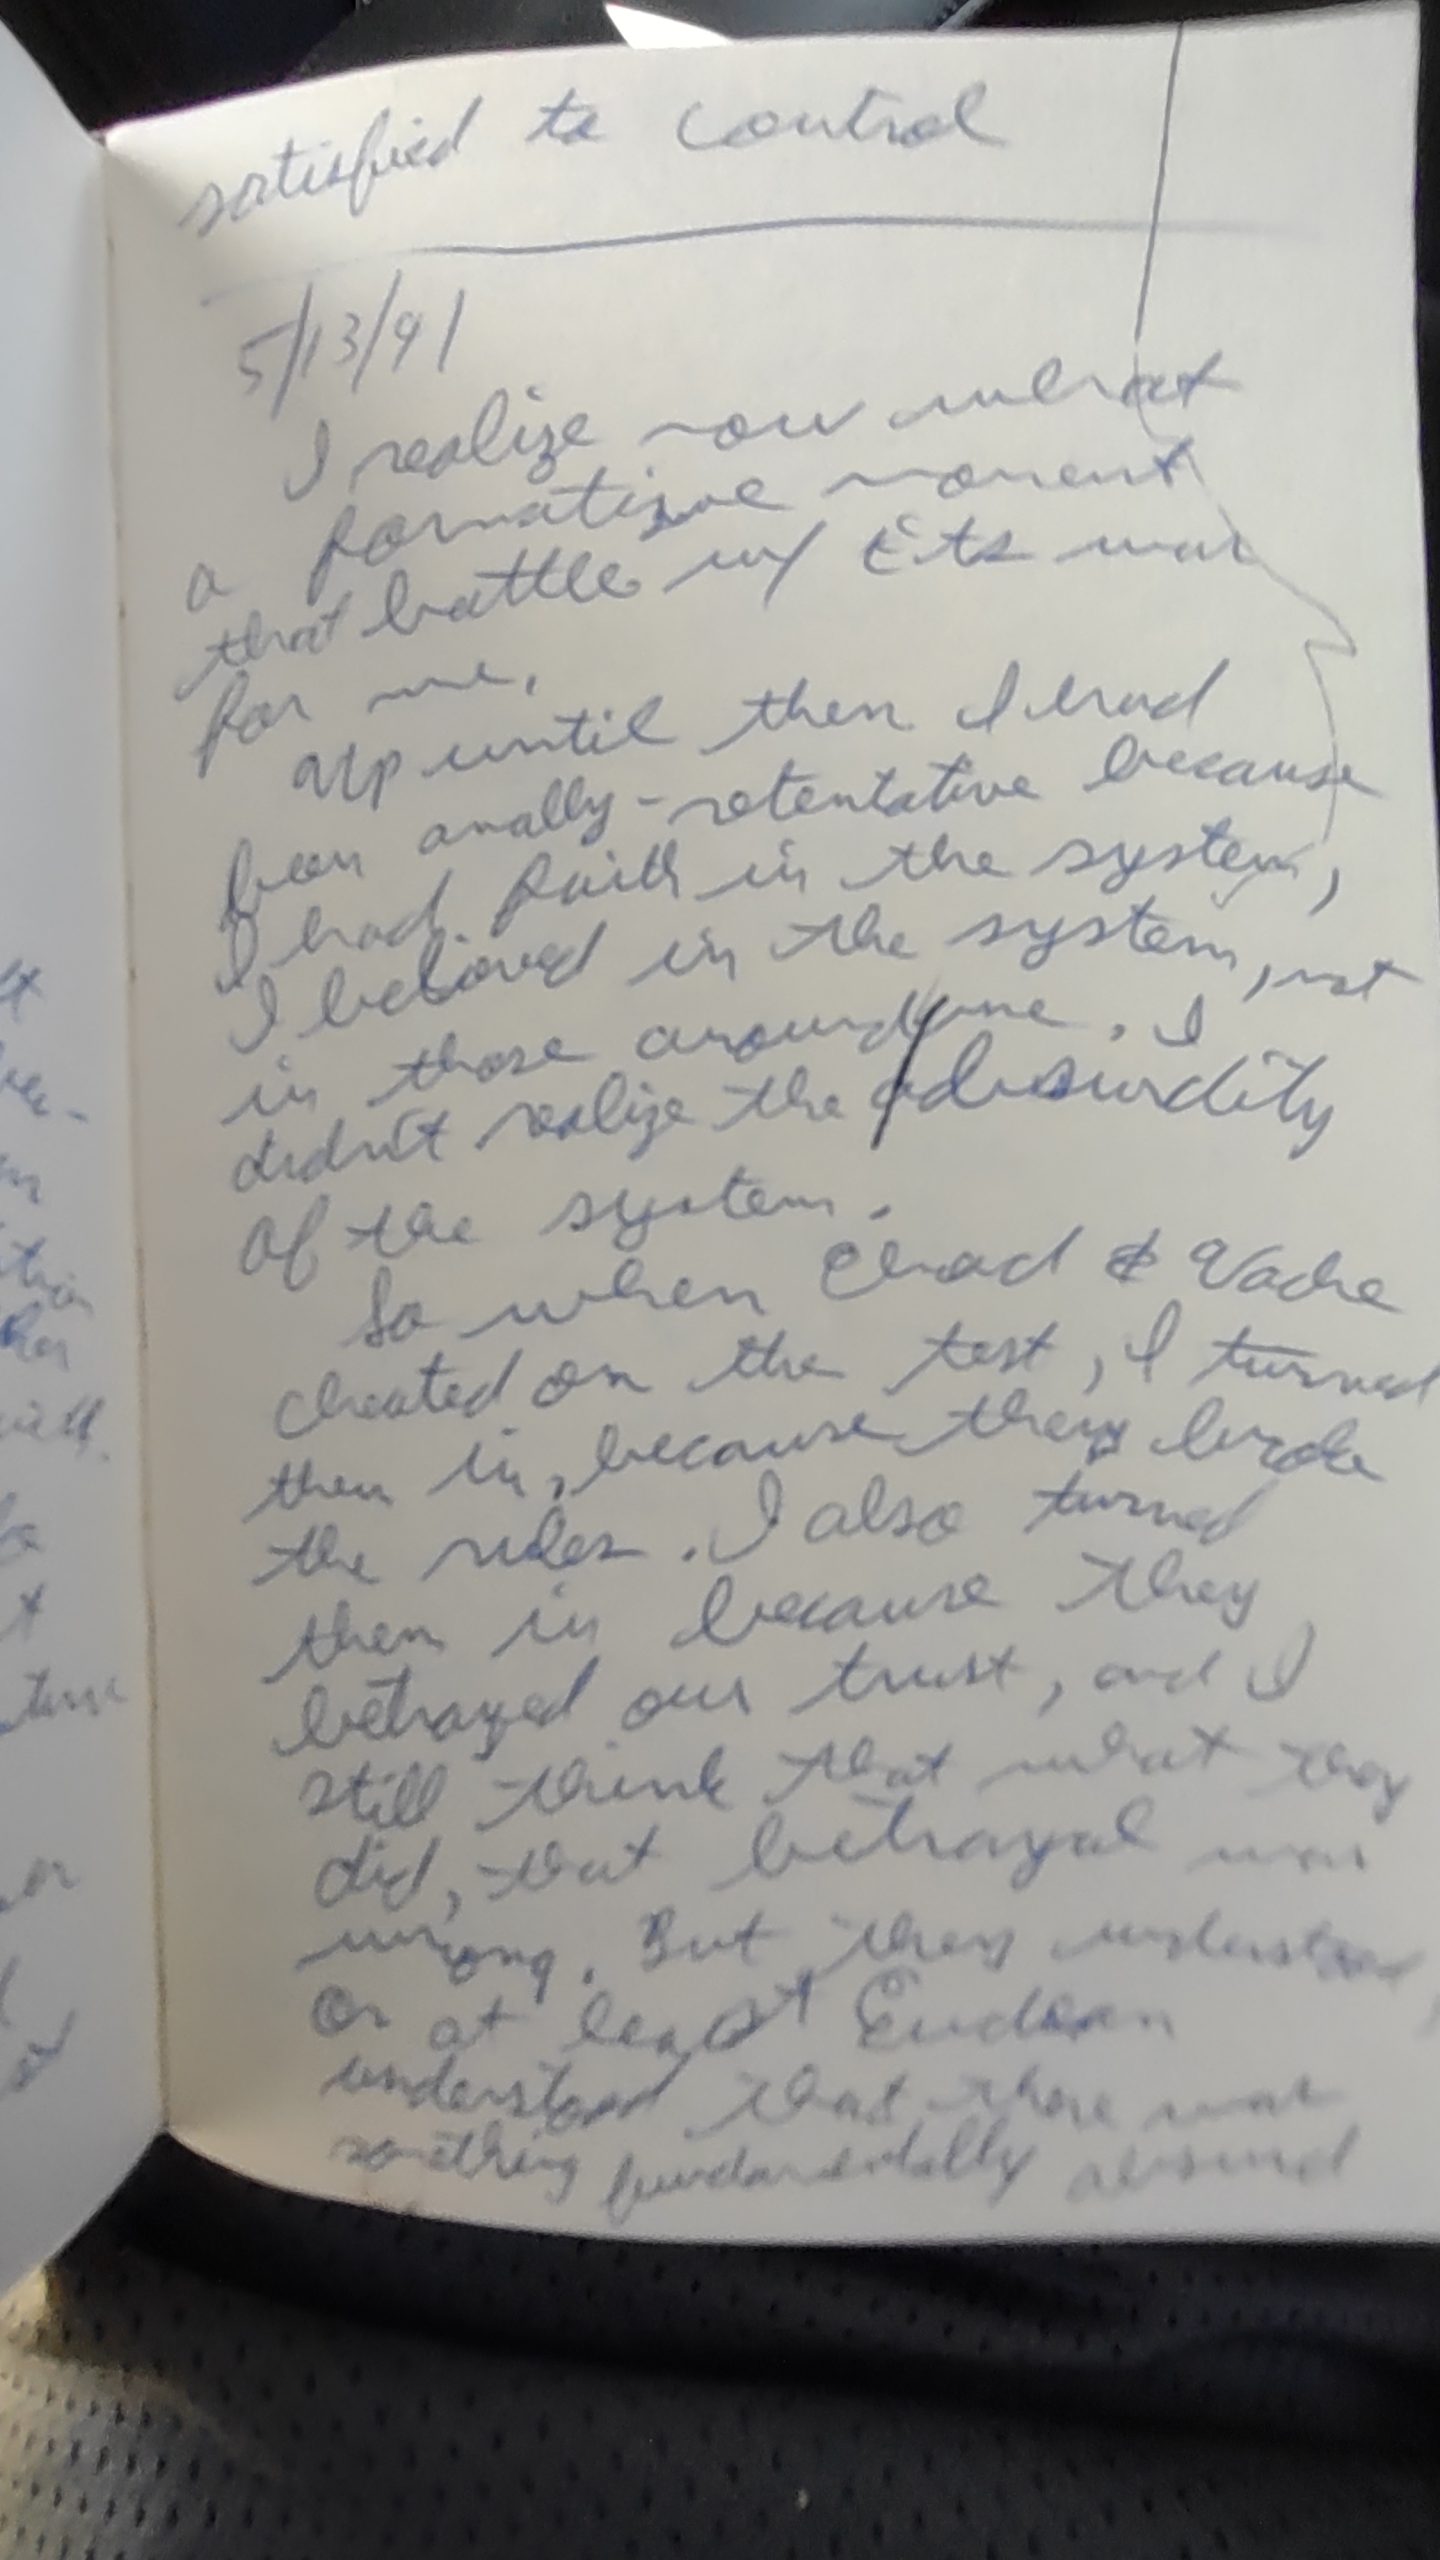 satisfied to control
5/13/91
I realize now what
a formative moment
that battle w/ was
for me.
Up until then I had
been anally-retentative because
I had faith in the system,
I believed in the system, not
in those around me. I
didn't realize the absurdity
of the system.
So when Chad &
cheated on the test, I turned
them in, because they broke
the rules. I also turned
them in because they
betrayed our trust, and I
still think that what they
did, that betrayal was
wrong. But they understood,
or at least
understood that there was
something fundamentally absurd